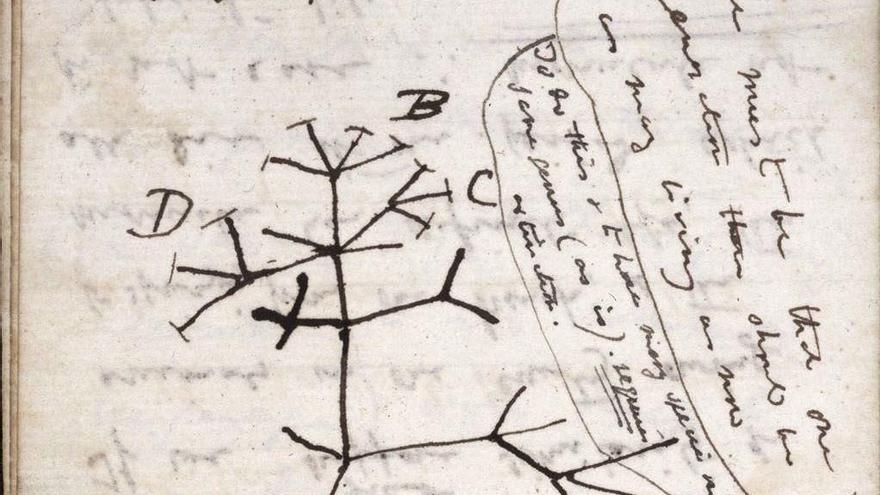 B
D
C
must be that one
eneration then should be
as many living as now
To do this & to have many species in
same genus (as is). requires
extinction.